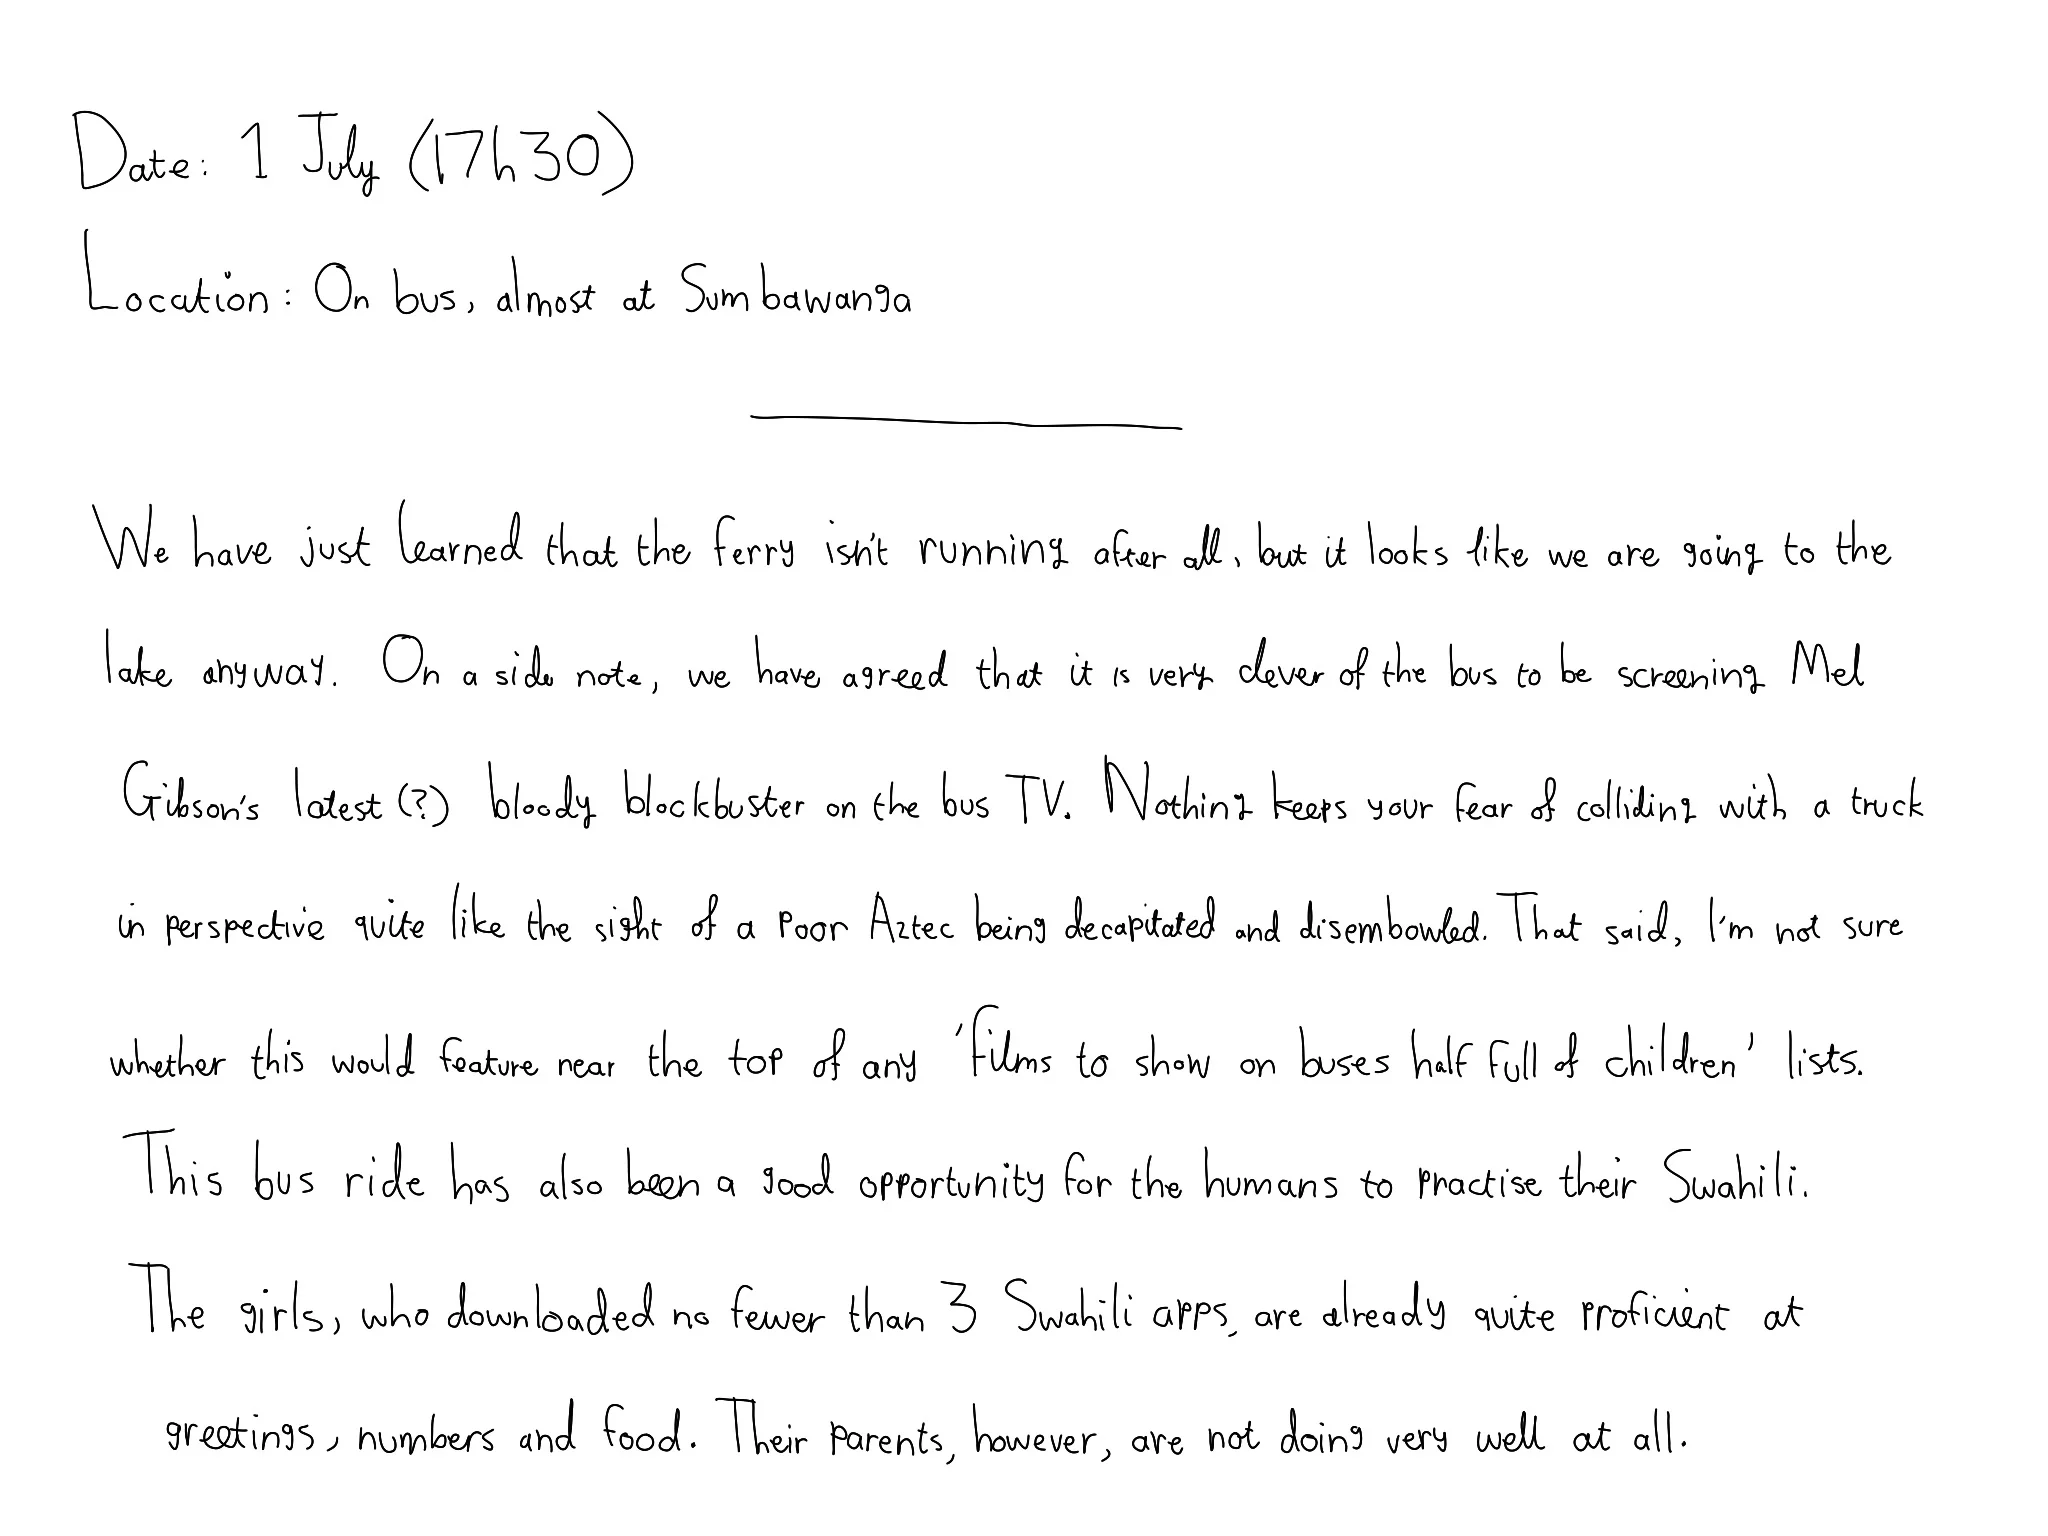 Date: 1 July (17h30)
Location: On bus, almost at Sumbawanga
We have just learned that the ferry isn't running after all, but it looks like we are going to the
lake anyway. On a side note, we have agreed that it is very clever of the bus to be screening Mel
Gibson's latest (?) bloody blockbuster on the bus TV. Nothing keeps your fear of colliding with a truck
in perspective quite like the sight of a poor Aztec being decapitated and disembowled. That said, I'm not sure
whether this would feature near the top of any 'films to show on buses half full of children' lists.
This bus ride has also been a good opportunity for the humans to practise their Swahili.
The girls, who downloaded no fewer than 3 Swahili apps, are already quite proficient at
greetings, numbers and food. Their parents, however, are not doing very well at all.